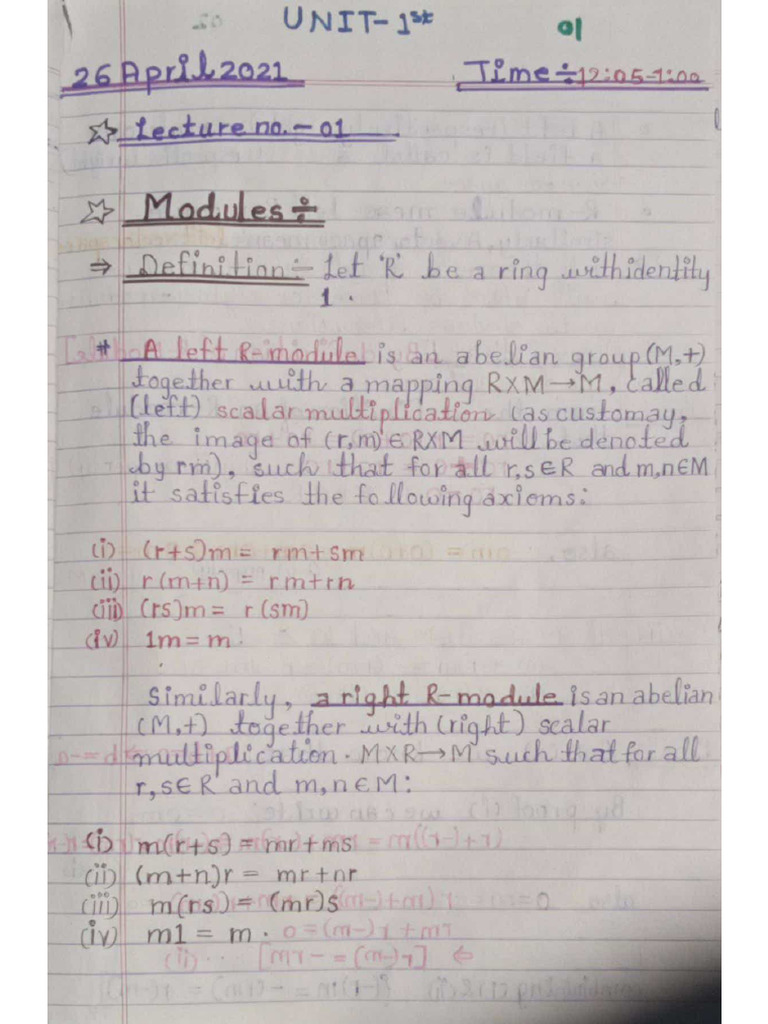 UNIT-1st
01
26 April 2021 Time÷12:05-1:00
☆ Lecture no.-01
☆ Modules÷
⇒ Definition÷ Let 'R' be a ring with identity
1.
# A left R-module is an abelian group (M,+)
together with a mapping R×M→M, called
(left) scalar multiplication (as customay,
the image of (r,m)∈R×M will be denoted
by rm), such that for all r,s∈R and m,n∈M
it satisfies the following axioms:
(i) (r+s)m = rm+sm
(ii) r(m+n) = rm+rn
(iii) (rs)m = r(sm)
(iv) 1m=m.
Similarly, a right R-module is an abelian
(M,+) together with (right) scalar
multiplication. M×R→M such that for all
r,s∈R and m,n∈M:
(i) m(r+s) = mr+ms
(ii) (m+n)r = mr+nr
(iii) m(rs) = (mr)s
(iv) m1 = m.